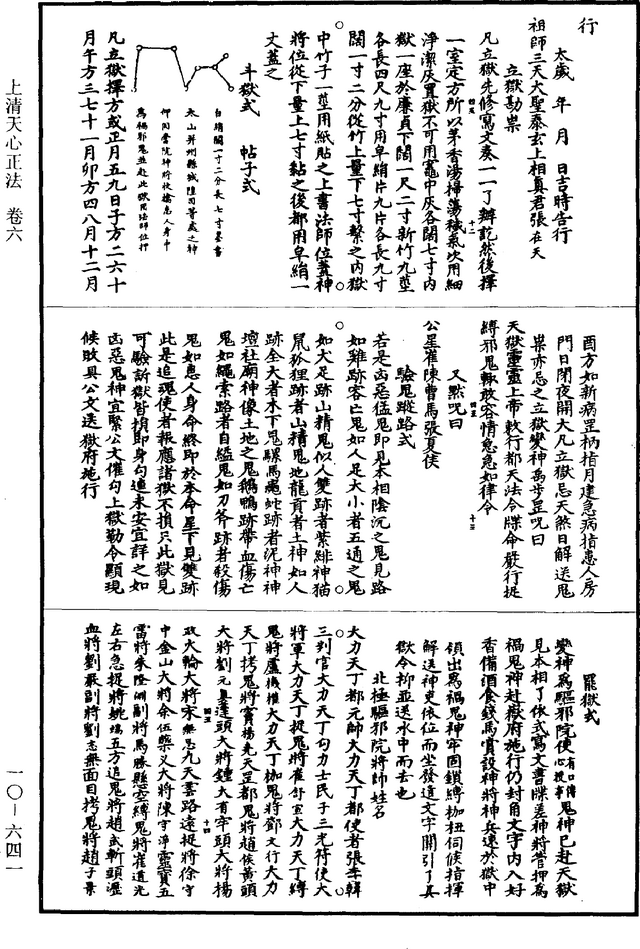 上清天心正法　卷六
一〇—六四一
行
太歲　年　月　日吉時告行
祖師三天大聖泰玄上相真君張在天
立獄勘祟
凡立獄先修寫文奏一一了辦訖然後擇
一室定方所以茅香湯掃蕩穢氣次用細
淨潔灰置獄不可用竈中灰各闊七寸內
獄一座於廉貞下闊一尺二寸新竹九莖
各長四尺九寸用皁絹片九片各長九寸
闊一寸二分從竹上量下七寸繫之內獄
中竹子一莖用紙貼之上書法師位蓋神
將位從下量上七寸黏之後都用皁絹一
丈蓋之
斗獄式　帖子式
白綃闊一寸二分長七寸墨書
太山并州縣城隍司等處之神
仰同當院神將收擒患人身中
為禍邪鬼並赴此獄
凡立獄擇方或正月五九日子方二六十
月午方三七十一月卯方四八月十二月
酉方如新病罡柄指月建急病指患人房
門日閉夜開大凡立獄忌天煞日解送鬼
祟亦忌之立獄變神禹步罡呪曰
天獄靈靈上帝敕行都天法令牒命嚴行捉
縛邪鬼輒敢容情急急如律令
又默呪曰
公星崔陳曹馬張夏侯
驗鬼蹤路式
若是凶惡猛鬼即見本相陰沉之鬼見路
如雞跡客亡鬼如人足大小者五通之鬼
如犬足跡山精鬼似人雙跡者紫緋神猫
鼠狐狸跡者山精鬼地龍貢者土神如人
跡全大者木下鬼騾馬龜蛇跡者泥神神
壇社廟神像土地之鬼鵝鴨跡帶血傷亡
鬼如繩索路者自縊鬼如刀斧跡者殺傷
鬼如患人身命終即於本命星下見雙跡
此是追魂使者報應諸獄不損只此獄見
可驗訴獄皆損即身勾連未安宜詳之如
凶惡鬼神宜緊公文催勾上獄勒令顯現
候敗具公文送獄府施行
罷獄式
變神為驅邪院使鬼神已赴天獄
見本相了依式寫文書牒差神將管押為
禍鬼神赴獄府施行仍封角文字內入好
香備酒食錢馬賞設神將神兵速於獄中
領出為禍鬼神牢固鎖縛枷杻伺候指揮
解送神吏依位而坐發遣文字開引了具
獄令抑並送水中而去也
北極驅邪院將帥姓名
大力天丁都元帥大力天丁都使者張李韓
三判官大力天丁勾力士民子三光符使大
將軍大力天丁捉鬼將崔舒宣大力天丁縛
鬼將盧機權大力天丁枷鬼將鄧文行大力
天丁拷鬼將竇楊堯天罡都鬼將趙侯黃頭
大將劉元真蓬頭大將鍾大有牢頭大將楊
政火輪大將宋無忌九天雲路遠捉將徐守
中金山大將余伍榮義大將陳守淨靈寶五
雷將朱陞洞副將馬勝縣空縛鬼將崔道光
左右急捉將姚端五方追鬼將趙武斬頭瀝
血將劉最副將劉志無面目拷鬼將趙子景